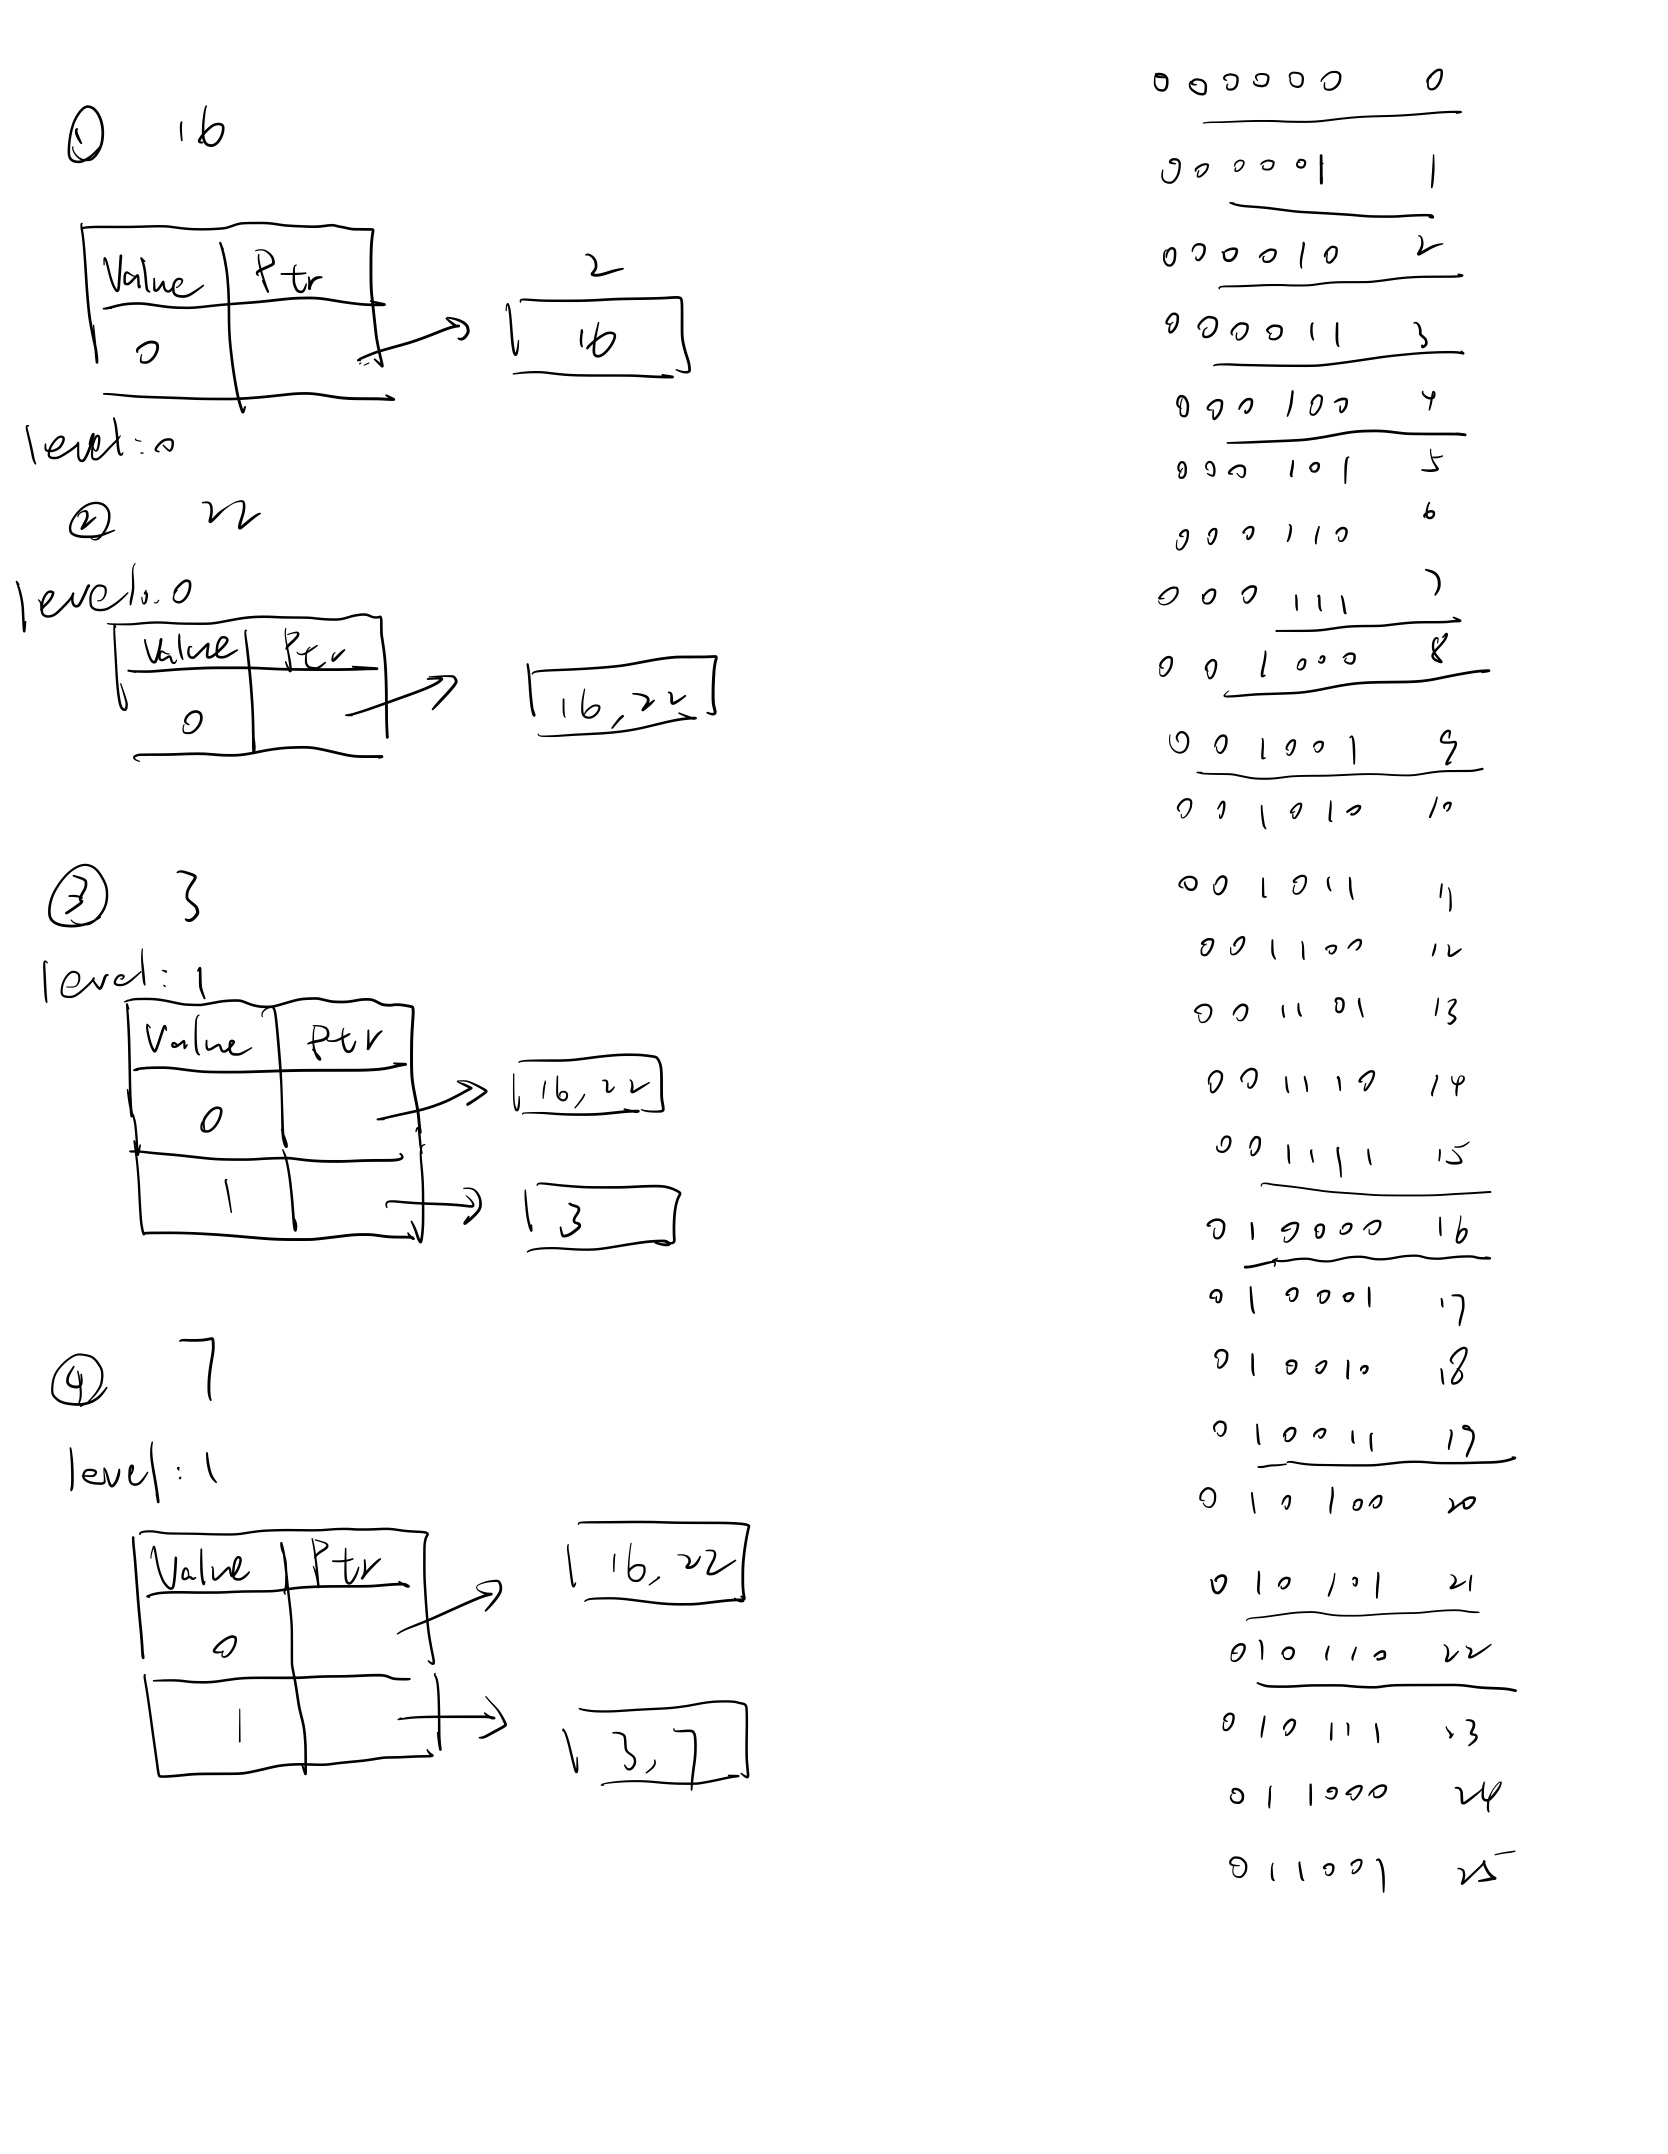 ① 16
Value Ptr
2
0
16
level: 0
② 22
level: 0
Value Ptr
0
16, 22
③ 3
level: 1
Value Ptr
0
16, 22
1
3
④ 7
level: 1
Value Ptr
0
16, 22
1
3, 7
000000 0
000001 1
000010 2
000011 3
000100 4
000101 5
000110 6
000111 7
001000 8
001001 9
001010 10
001011 11
001100 12
001101 13
001110 14
001111 15
010000 16
010001 17
010010 18
010011 19
010100 20
010101 21
010110 22
010111 23
011000 24
011001 25